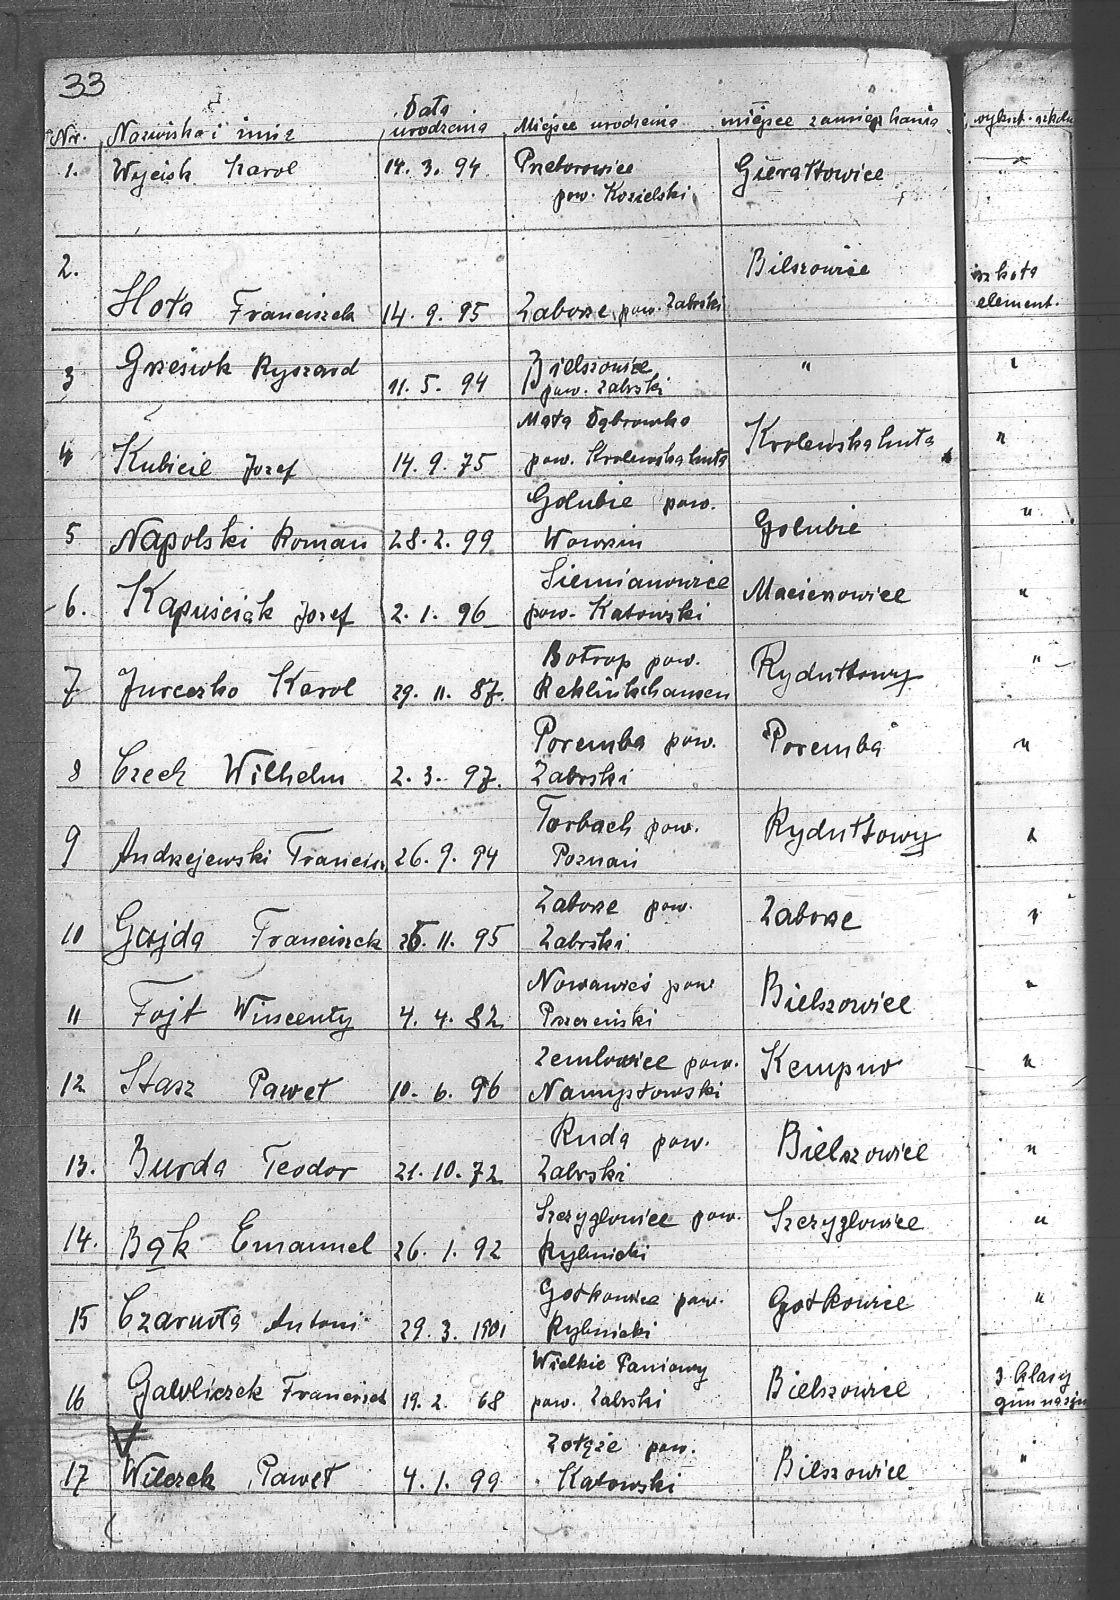 33
Nr. Nazwiska i imię Data urodzenia Miejsce urodzenia miejsce zamieszkania wykszt. szkoln
1. Wojcik Karol 14. 3. 94 Przeborowice pow. Kozielski Gierałtowice "
2. Hota Franciszek 14. 9. 95 Zaborze pow. Zabrski Bilszowice szkoła element.
3 Grzesiok Ryszard 11. 5. 94 Bielszowice pow. Zabrski " "
4 Kubicie Jozef 14. 9. 75 Mała Dąbrowka pow. Krolewska huta Krolewska huta "
5 Napolski Roman 28. 2. 99 Golubie pow. Golubie "
6. Kapuściak Jozef 2. 1. 96 Siemianowice pow. Katowski Macienowice "
7 Jureczko Karol 29. 11. 87. Botrop pow. Reklinkhausen Rydułtowy "
8 Czech Wilhelm 2. 3. 97. Poremba pow. Zabrski Poremba "
9 Andrzejewski Francisz. 26. 9. 94 Torbach pow. Poznań Rydułtowy "
10 Gajda Franciszek 26. 11. 95 Zaborze pow. Zabrski Zaborze "
11 Fojt Wincenty 4. 4. 82 Nowawieś pow Pszczeński Bielszowice "
12 Stasz Paweł 10. 6. 96 Zemlowice pow. Namysłowski Kempno "
13. Burda Teodor 21. 10. 72 Ruda pow. Zabrski Bielszowice "
14. Bąk Emanuel 26. 1. 92 Szczygłowice pow. Rybnicki Szczygłowice "
15 Czarnota Antoni 29. 3. 1901 Gotkowice pow. Rybnicki Gotkowice "
16 Gawliczek Franciszek 19. 2. 68 Wielkie Paniowy pow. Zabrski Bielszowice 3 klasy gimnazju
17 Wilczek Paweł 4. 1. 99 Zołęże pow. Katowski Bilszowice "